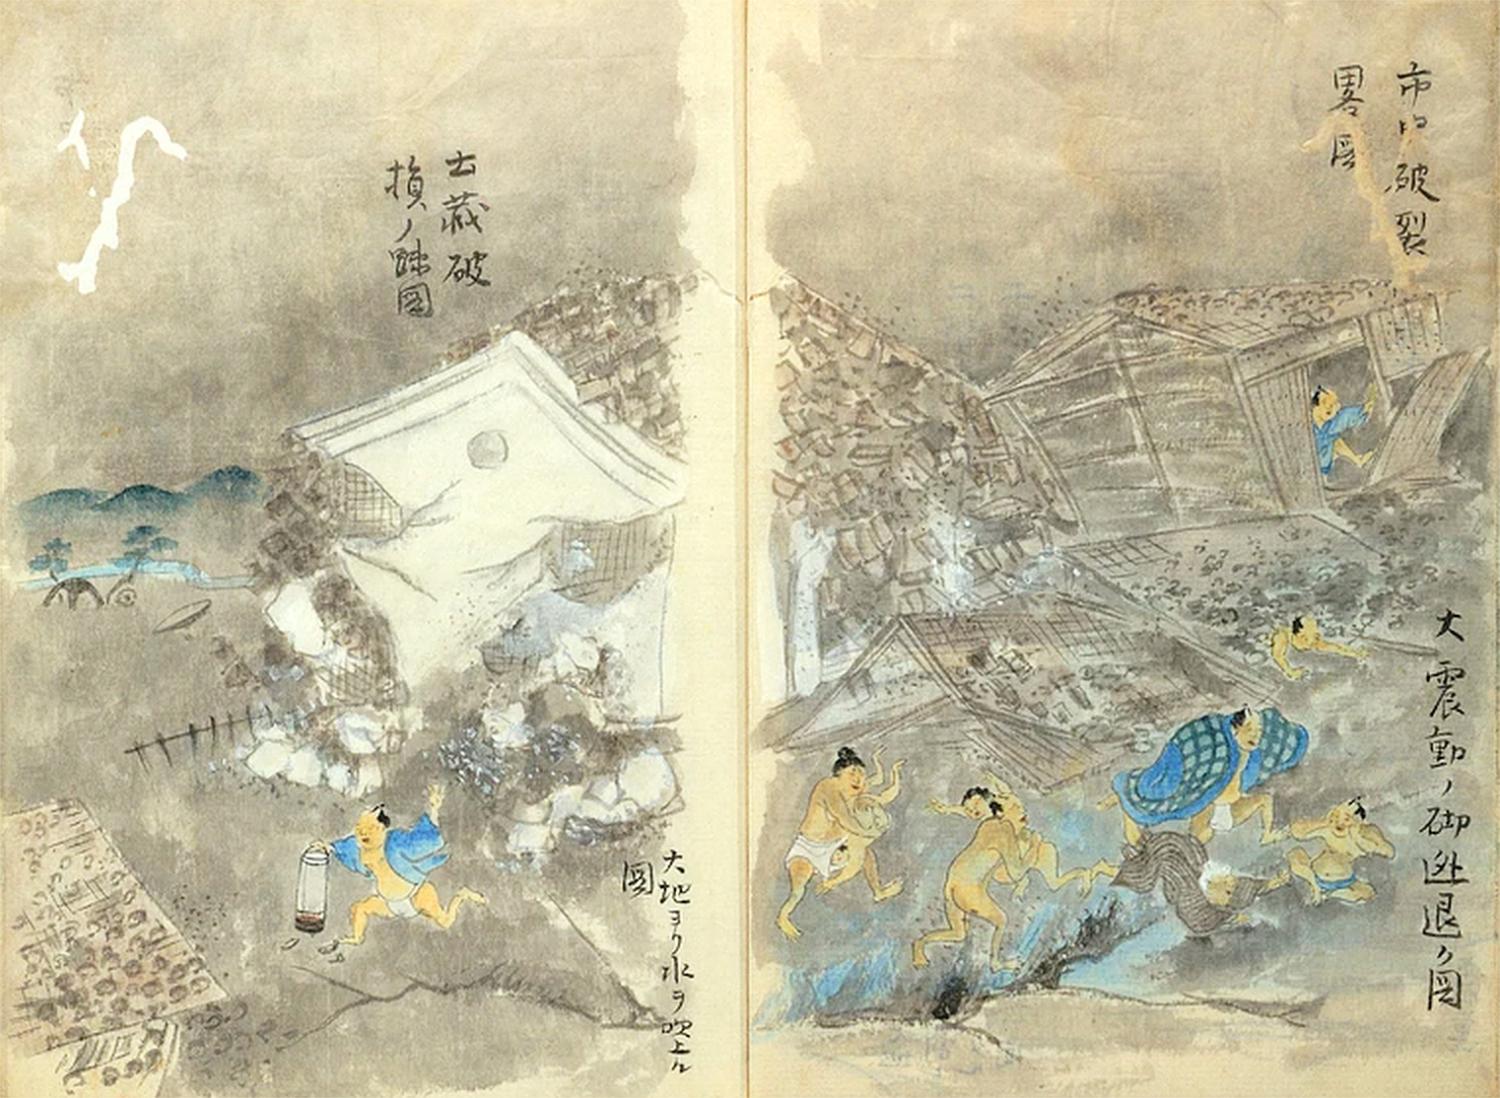 市内破裂
畧図
大震動ノ砌迯退ノ図
土蔵破
損ノ跡図
大地ヨリ水ヲ吹上ル
図